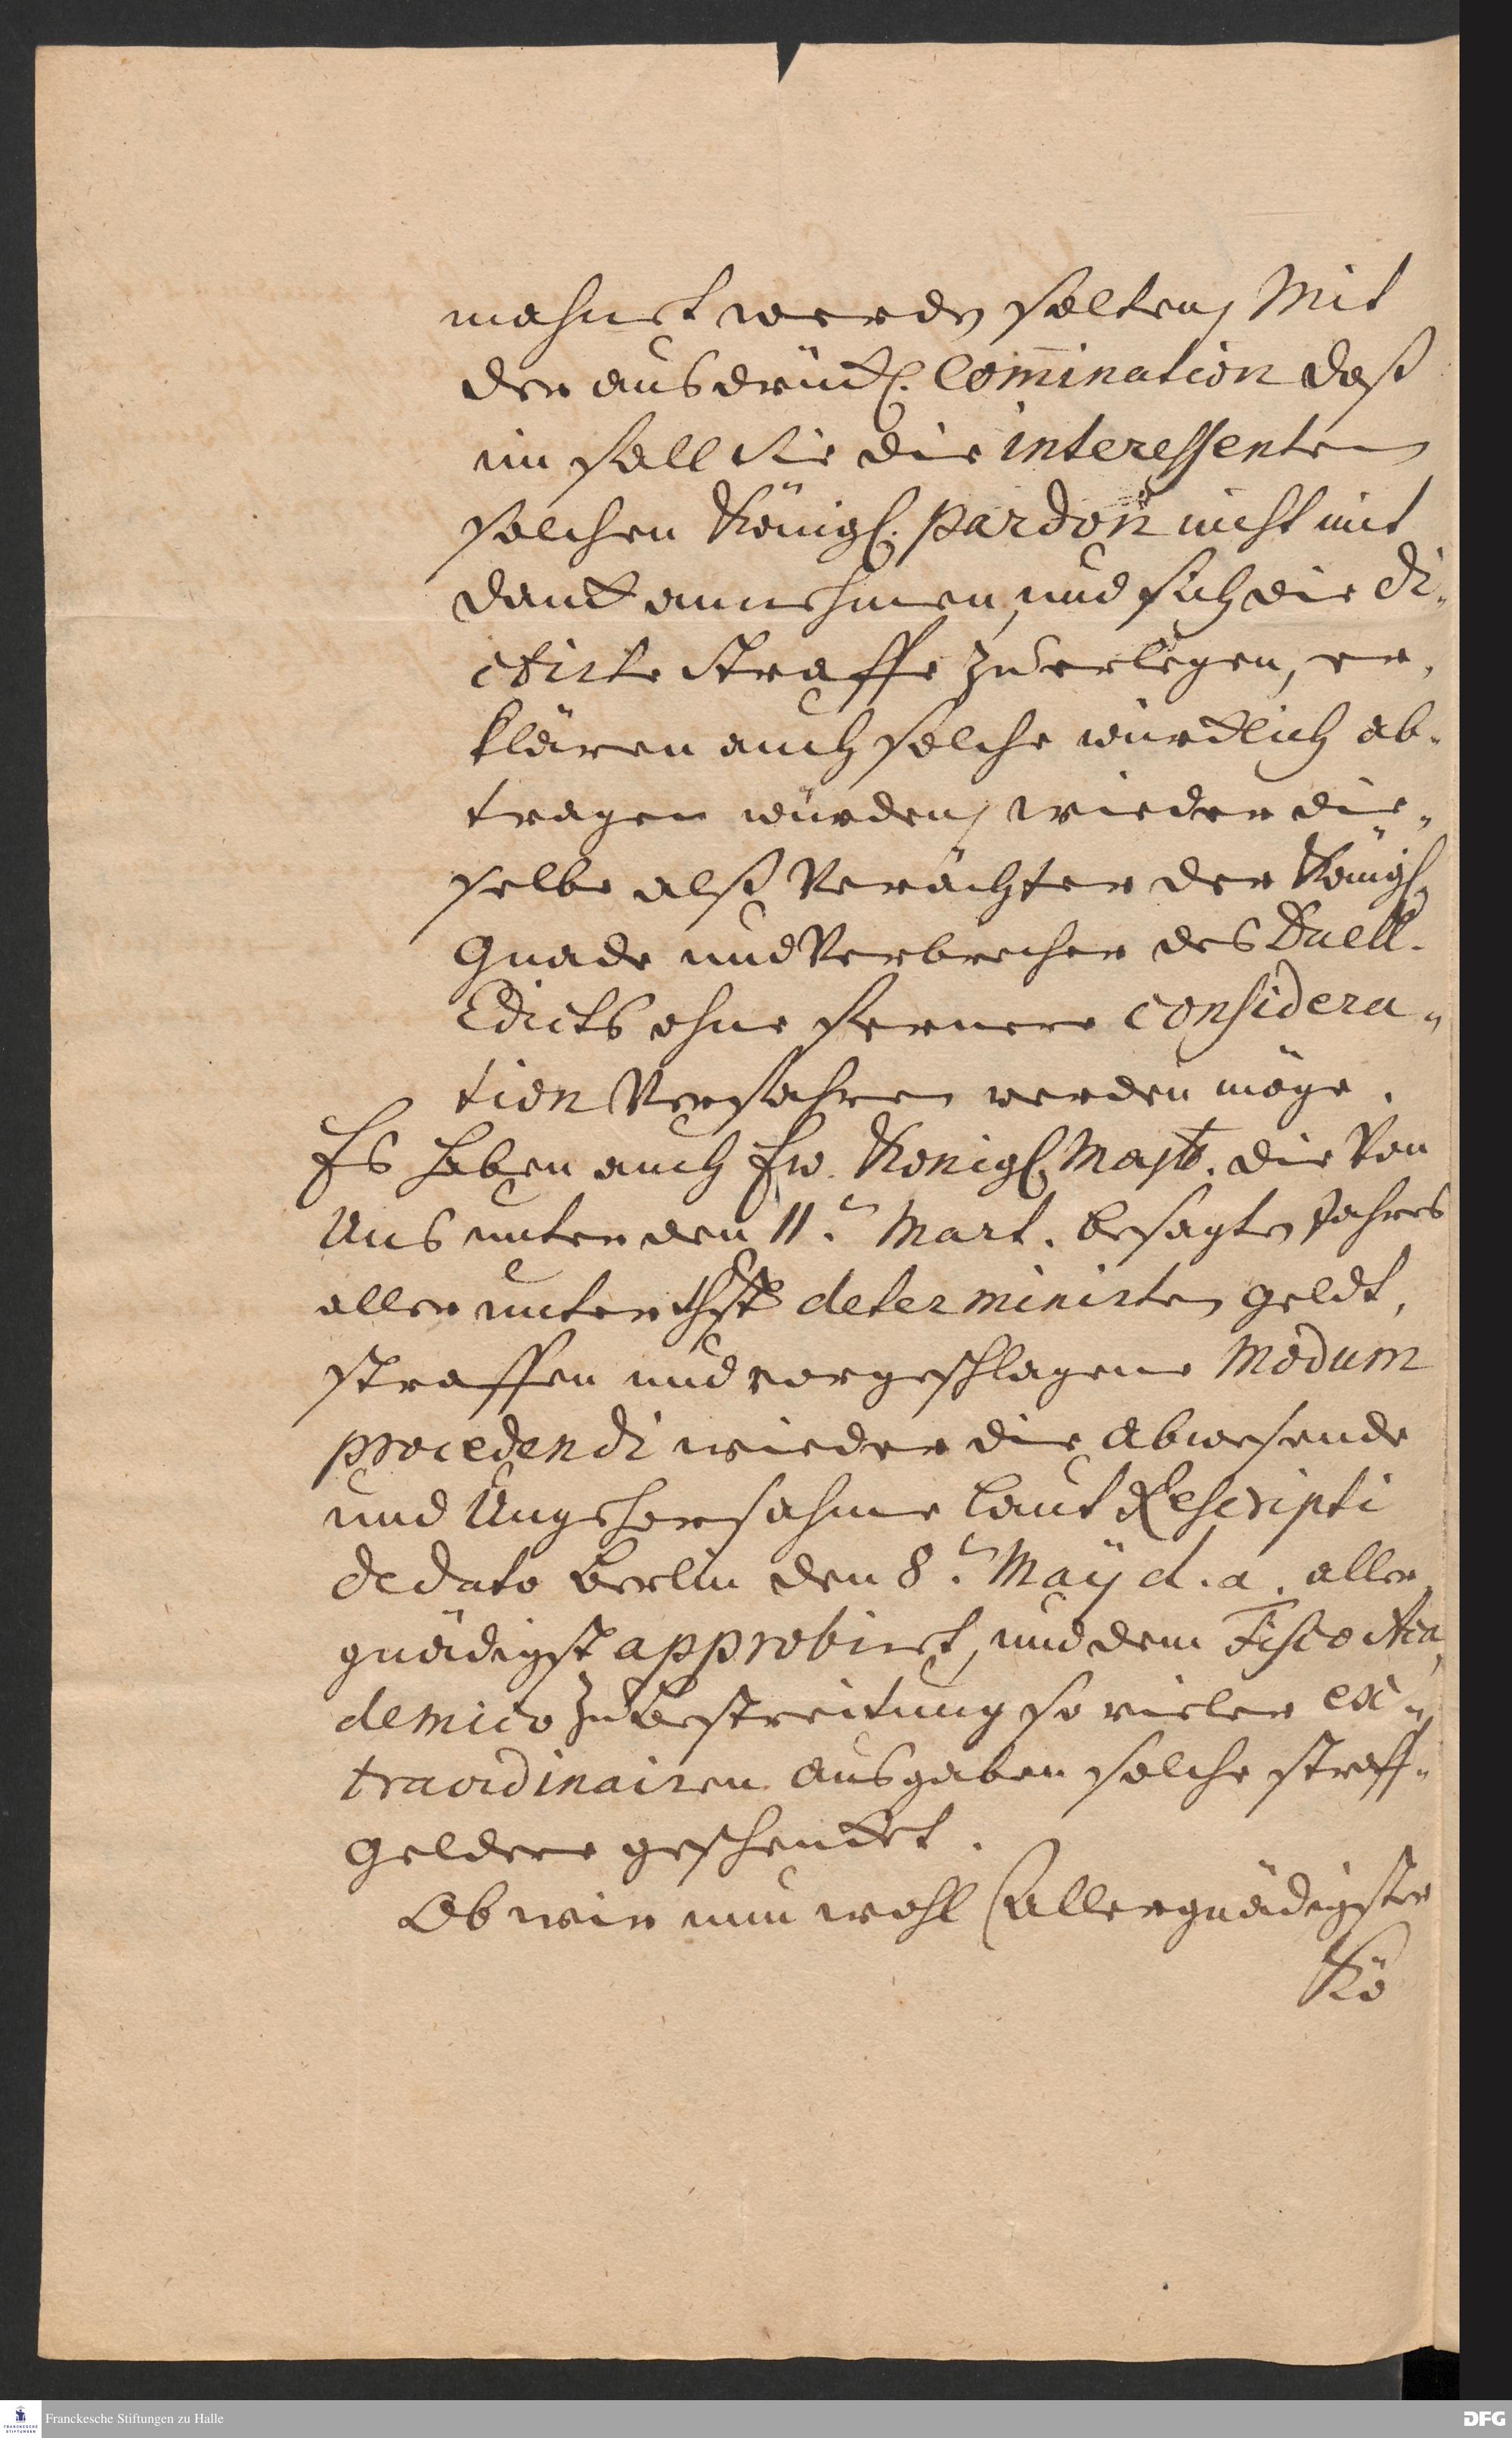 mahnet werden solten, Mit
der ausdrückl. Com̅ination daß
im fall Sie die interessenten
solchen Königl. pardon nicht mit
danck annehmen, und sich die di-
ctirte Straffe zu erlegen, er-
klären auch solche würcklich ab-
tragen würden, wieder die-
selbe alß Verächter der Königl.
Gnade und Verbrecher des Duell-
Edicts ohne fernere considera-
tion Verfahren werden möge.
Es haben auch Ew. Königl. Majtt. die Von
Uns unter den 11.n Mart. besagten Jahres
aller unterthgst determinirten geldt,
straffen und vorgeschlagene Modum
procedendi wieder die Abwesende
und Ungehorsahme laut Rescripti
de dato Berlin den 8.n Maÿ d. a. aller,
gnädigst approbiret, und dem Fisco Aca,
demico zu Bestreitung so vieler ex-
traordinairen Ausgaben solche straff-
Geldere geschencket.
Ob wir nun wohl (Allergnädigster
Kö
Franckesche Stiftungen zu Halle
DFG